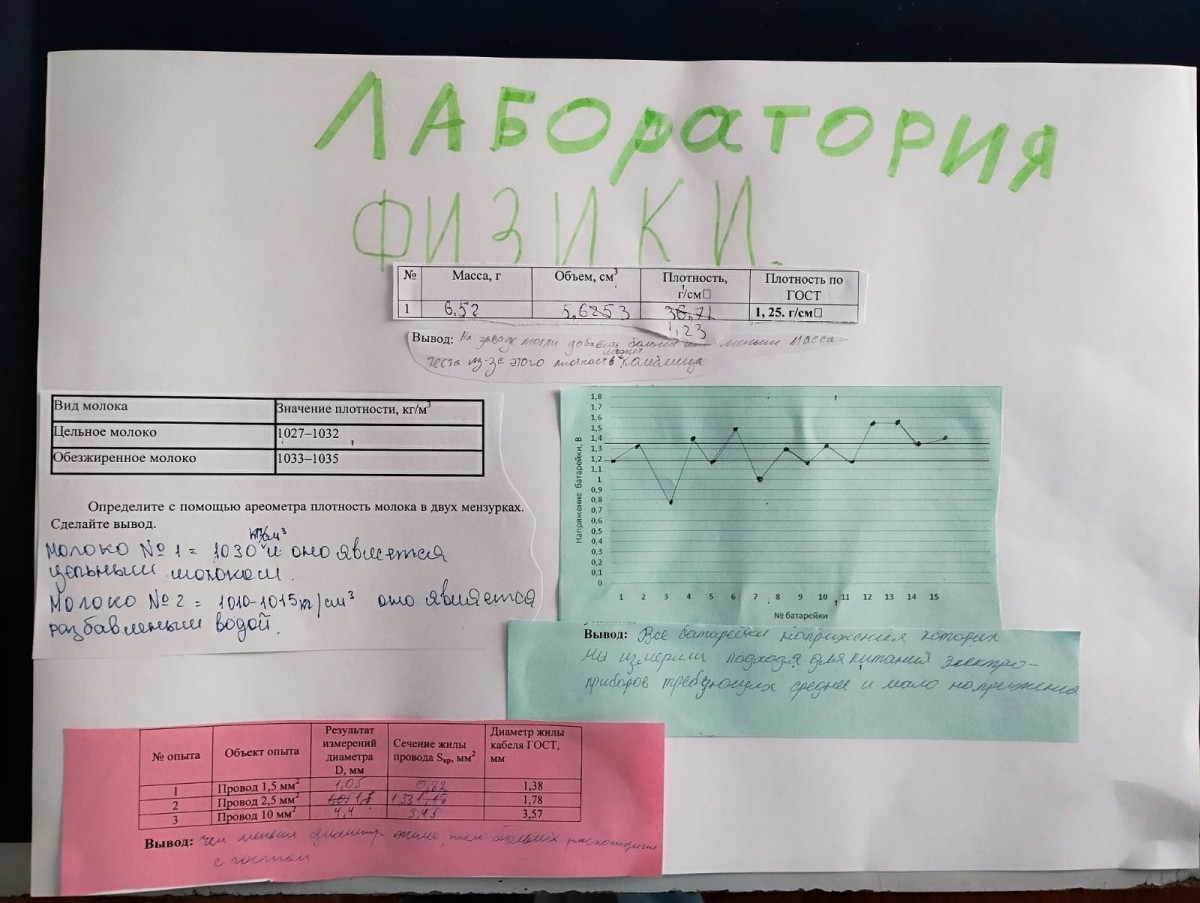 ЛАБОРАТОРИЯ
ФИЗИКИ.
№ Масса, г Объем, см³ Плотность, г/см□ Плотность по ГОСТ
1 6,52 5,6253 36,71 1,25. г/см□
1,23
Вывод: На заводе могли добавить больше или меньши масса
теста из-за этого плотность может
Вид молока Значение плотности, кг/м³
Цельное молоко 1027–1032
Обезжиренное молоко 1033–1035
Определите с помощью ареометра плотность молока в двух мензурках.
Сделайте вывод.
Молоко №1 = 1030 кг/см³ и оно является
цельным молоком.
Молоко №2 = 1010-1015кг/см³ оно является
разбавленым водой.
Напряжение батарейки, В
1,8
1,7
1,6
1,5
1,4
1,3
1,2
1,1
1
0,9
0,8
0,7
0,6
0,5
0,4
0,3
0,2
0,1
0
1 2 3 4 5 6 7 8 9 10 11 12 13 14 15
№ батарейки
Вывод: Все батарейки напряжения которых
мы измерили подходя для питаний электро-
приборов требующих среднее и мало напряжения
№ опыта Объект опыта Результат измерений диаметра D, мм Сечение жилы провода Sкр, мм² Диаметр жилы кабеля ГОСТ, мм
1 Провод 1,5 мм² 1,05 0,82 1,38
2 Провод 2,5 мм² 1,78
3 Провод 10 мм² 3,57
Вывод: чем меньше диаметр жилы, тем больших
с гостом